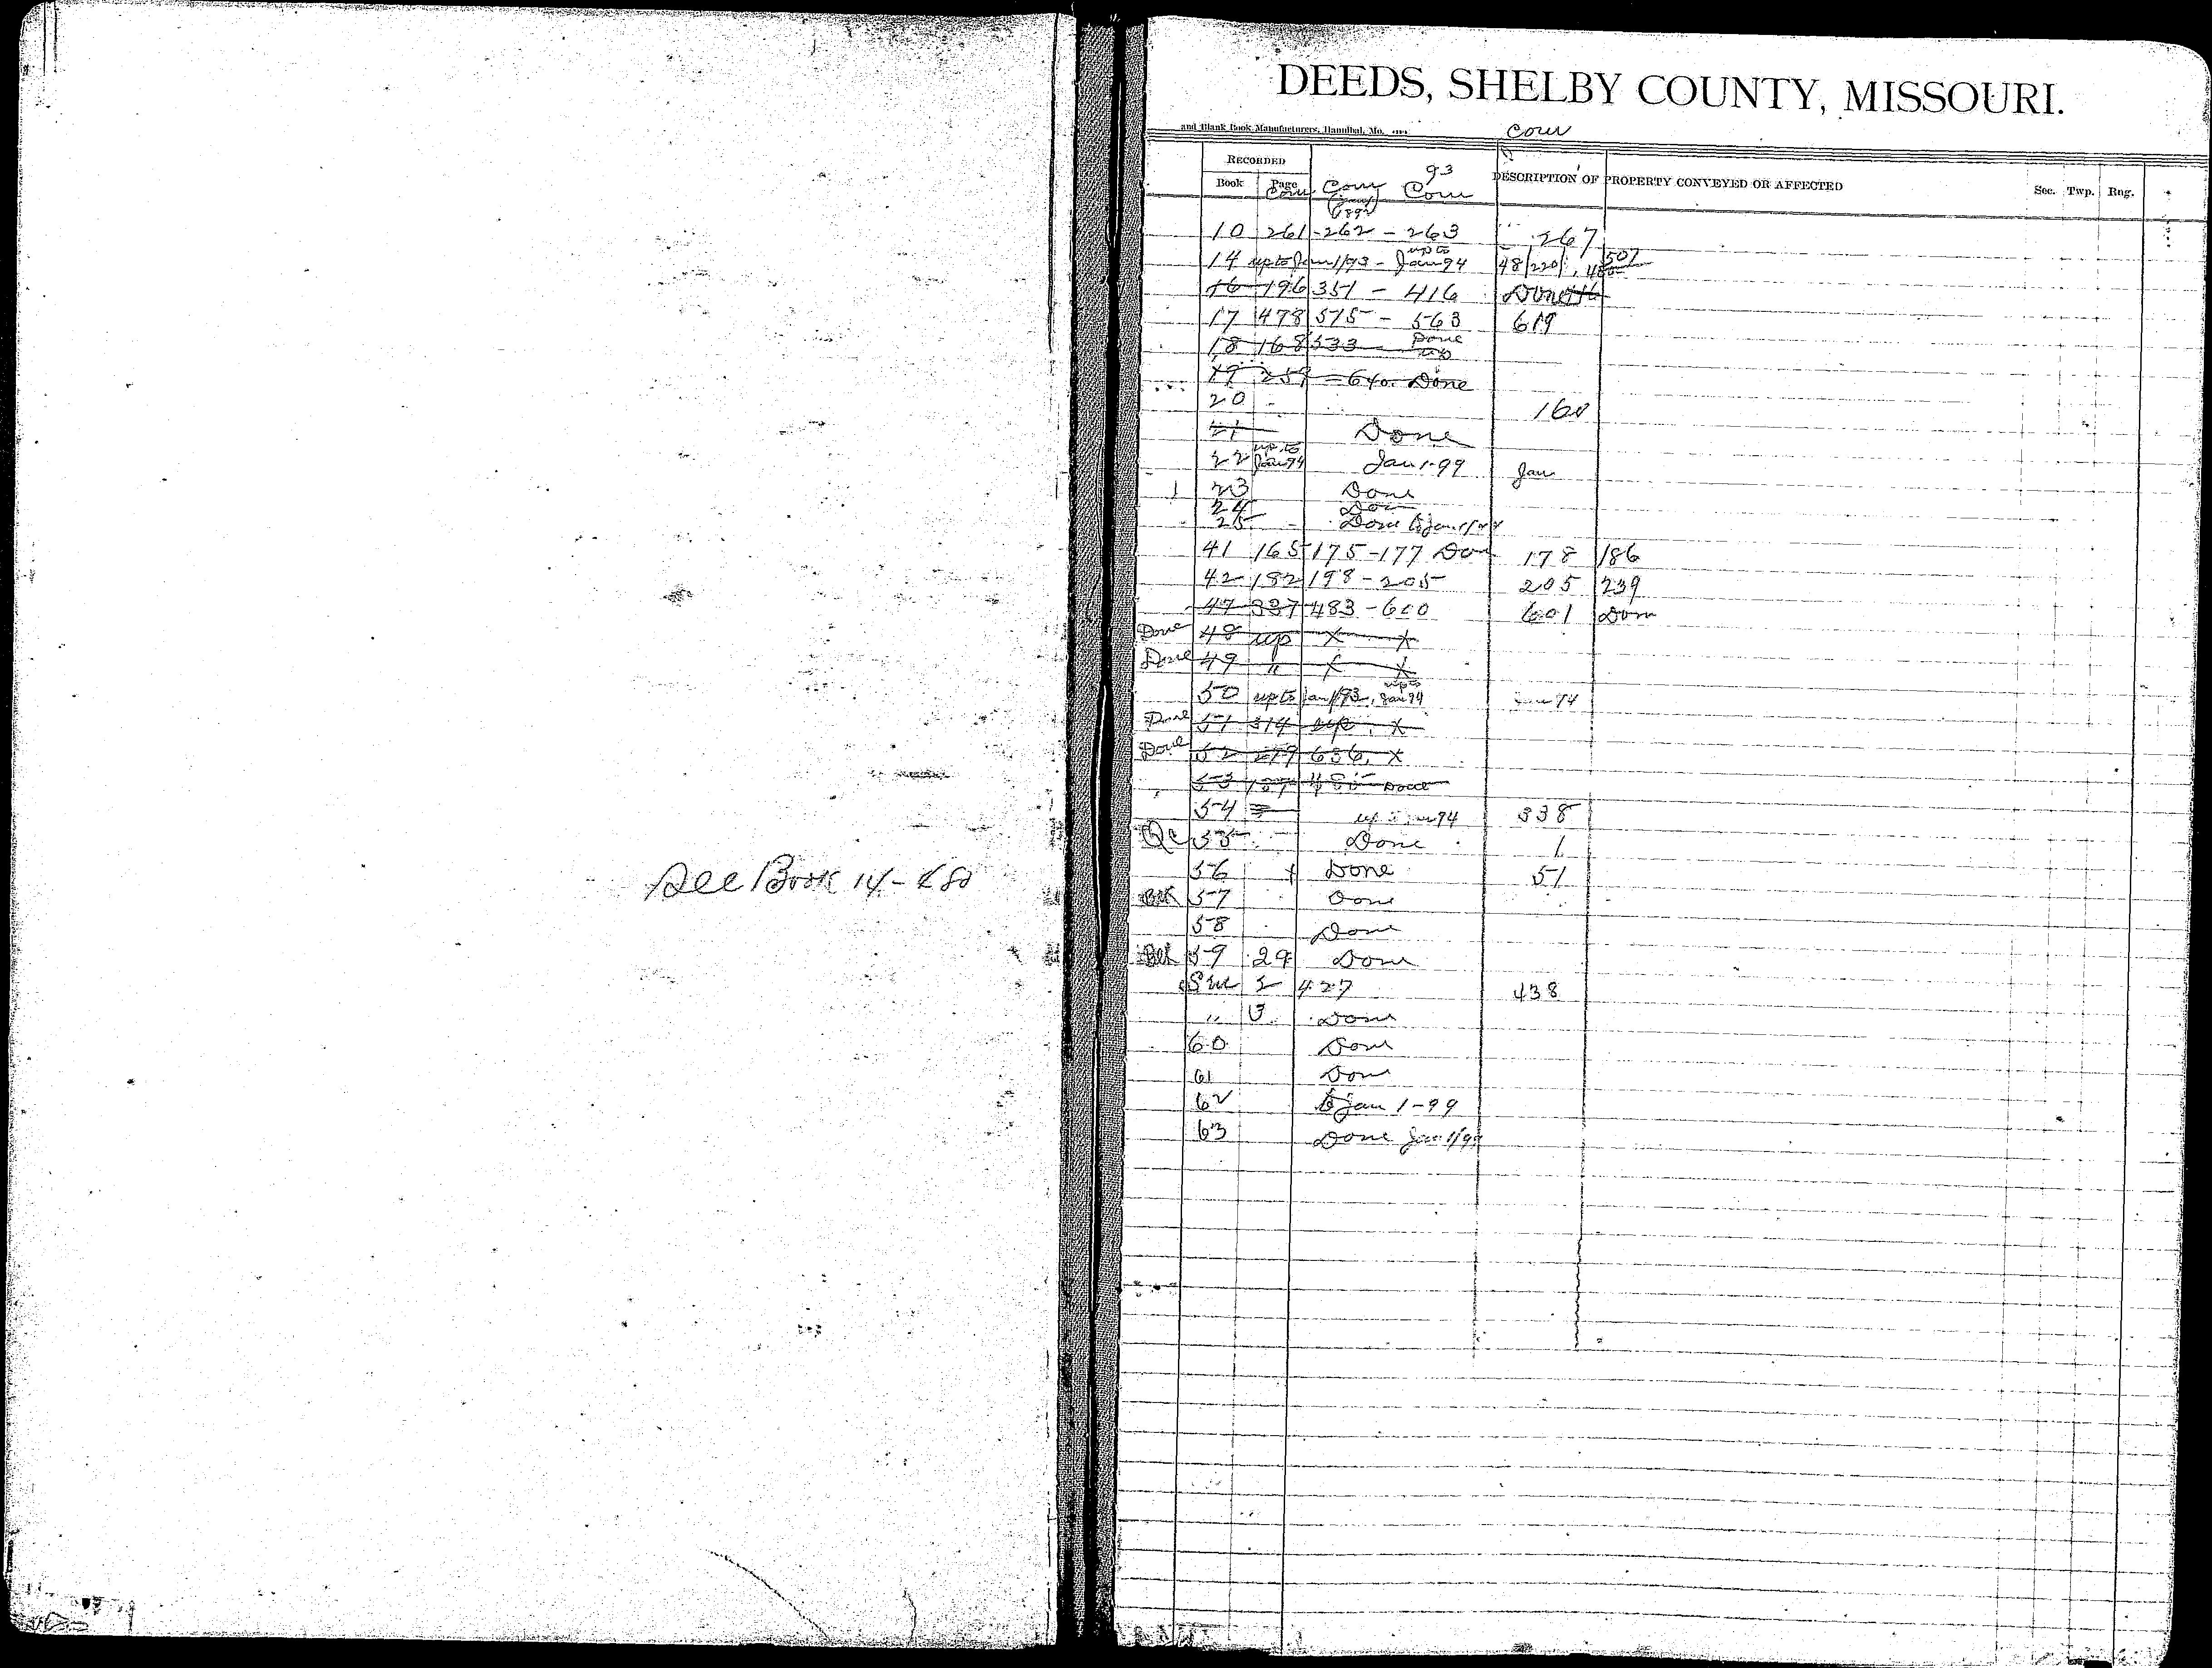 See Book 14-480
DEEDS, SHELBY COUNTY, MISSOURI.
and Blank Book Manufacturers, Hannibal, Mo.
Com
RECORDED
93
Book Page DESCRIPTION OF PROPERTY CONVEYED OR AFFECTED Sec. Twp. Rng.
Com Com Com
1892
10 261-262-263 267
14 up to Jan 1/93 - up to Jan 94 48/220 507
16 196 351 - 416 Done
17 478 515 - 563 619
18 168 533 Done
19 259 - 640. Done
20 160
21 Done
22 up to Jan 94 Jan 1-99 Jan
23 Done
24 Don
25 Done to Jan 1/
41 165 175-177 Don 178 186
42 182 198-205 205 239
47 337 483-600 601 Don
Done 48 up x x
Done 49 " x x
50 up to Jan 1/93, up to Jan 94 94
Done 51 314 up. x
Done 52 279 636. x
53 Done
54 up 94 338
Qc 55 Done 1
56 x Done 51
57 Done
58 Done
59 29 Done
2 427 438
" 3 Done
60 Done
61 Done
62 to Jan 1-99
63 Done Jan 1/99